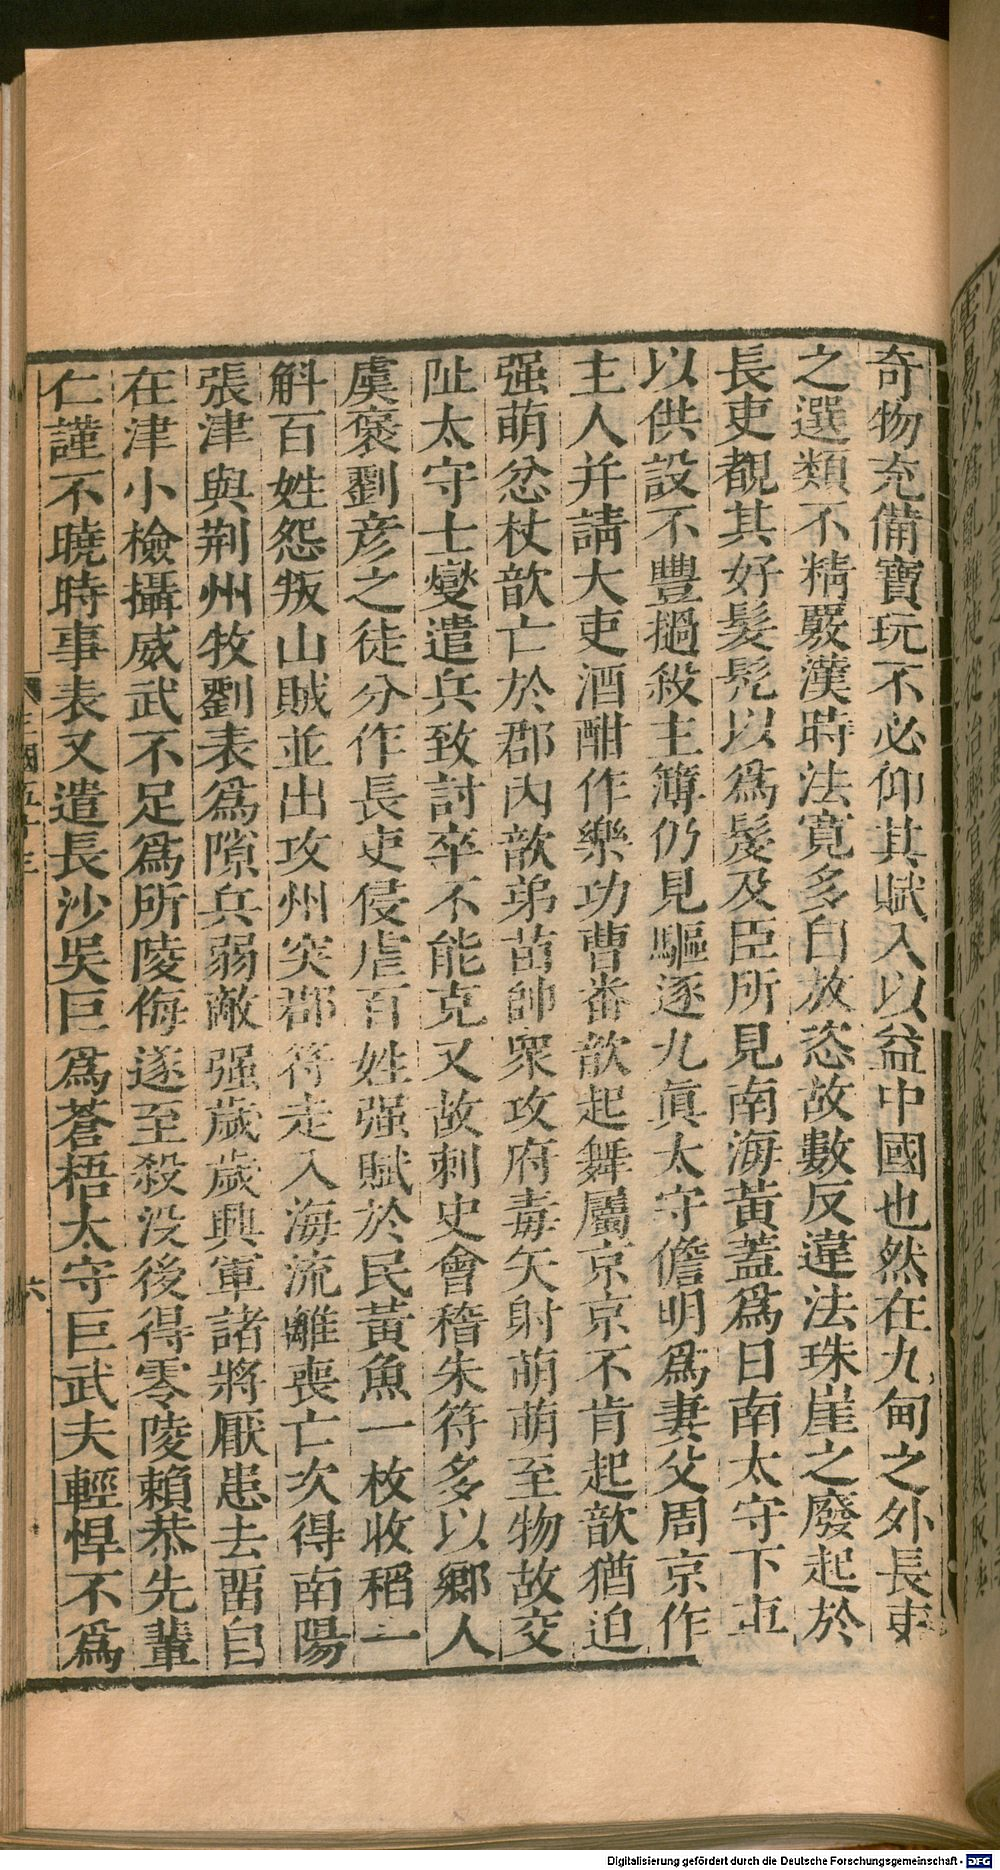 奇物充備寶玩不必仰其賦入以益中國也然在九甸之外長吏
之選類不精覈漢時法寬多自放恣故數反違法珠崖之廢起於
長吏覩其好髮髡以爲髲及臣所見南海黃蓋爲日南太守下車
以供設不豐撾殺主簿仍見驅逐九眞太守儋明爲妻父周京作
主人并請大吏酒酣作樂功曹番歆起舞屬京京不肯起歆猶迫
强萌忿杖歆亡於郡內歆弟苗帥衆攻府毒矢射萌萌至物故交
阯太守士燮遣兵致討卒不能克又故刺史會稽朱符多以鄉人
虞褒劉彥之徒分作長吏侵虐百姓强賦於民黃魚一枚收稻一
斛百姓怨叛山賊並出攻州突郡符走入海流離喪亡次得南陽
張津與荆州牧劉表爲隙兵弱敵强歲歲興軍諸將厭患去留自
在津小檢攝威武不足爲所陵侮遂至殺没後得零陵賴恭先輩
仁謹不曉時事表又遣長沙吳巨爲蒼梧太守巨武夫輕悍不爲
六
Digitalisierung gefördert durch die Deutsche Forschungsgemeinschaft - DFG